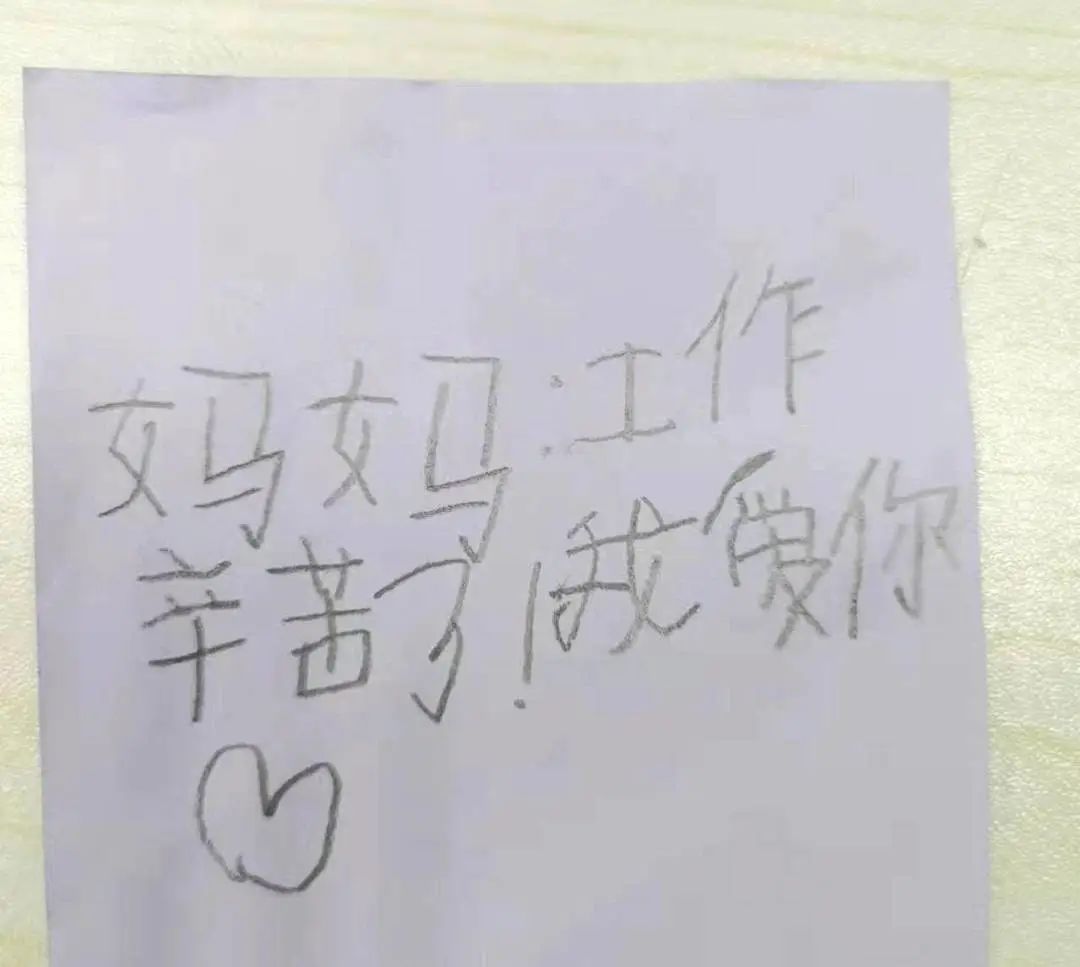 妈妈:工作
辛苦了!我爱你